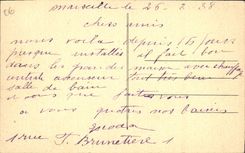 marseille le 26. 2. 38
chers amis
nous voila depuis 15 jours
presque installés et fait bon
dans les grandes maison avec chauffage
centrale ascenseur tout très bien
salle de bain
et vous que faites vous
a vous quatres nos baisers
1 rue F. Brunetière 1